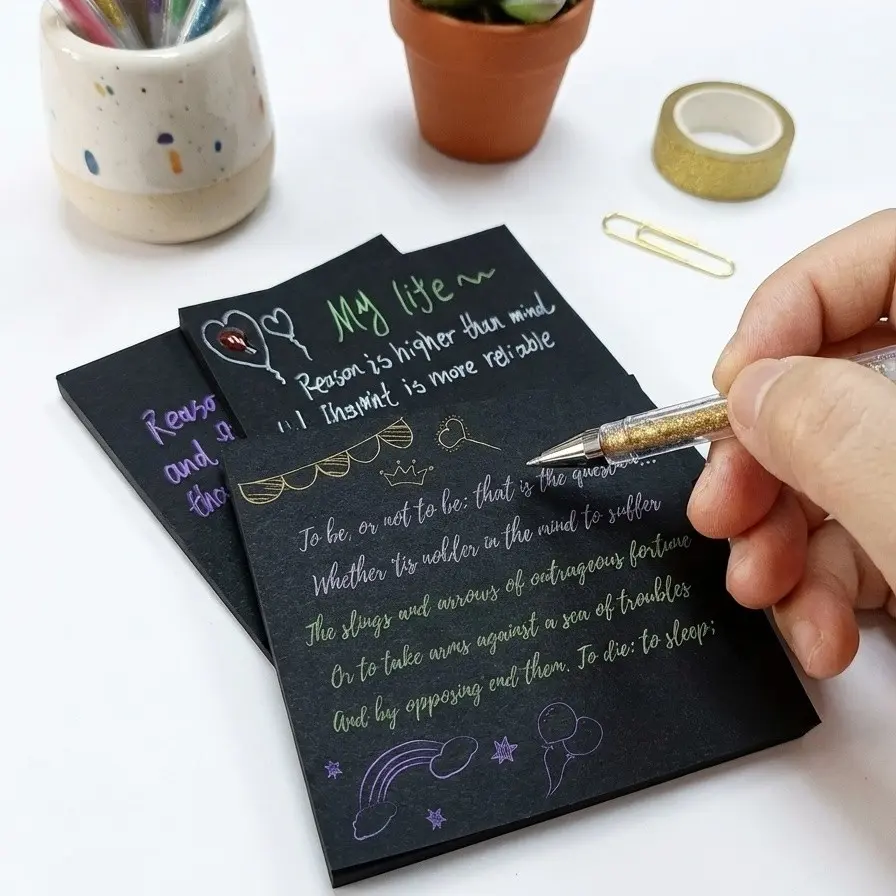 My life
Reason is higher than mind
is more reliable
Reaso
and
tha
To be, or not to be: that is the question...
Whether 'tis nobler in the mind to suffer
The slings and arrows of outrageous fortune
Or to take arms against a sea of troubles
And by opposing end them. To die: to sleep;